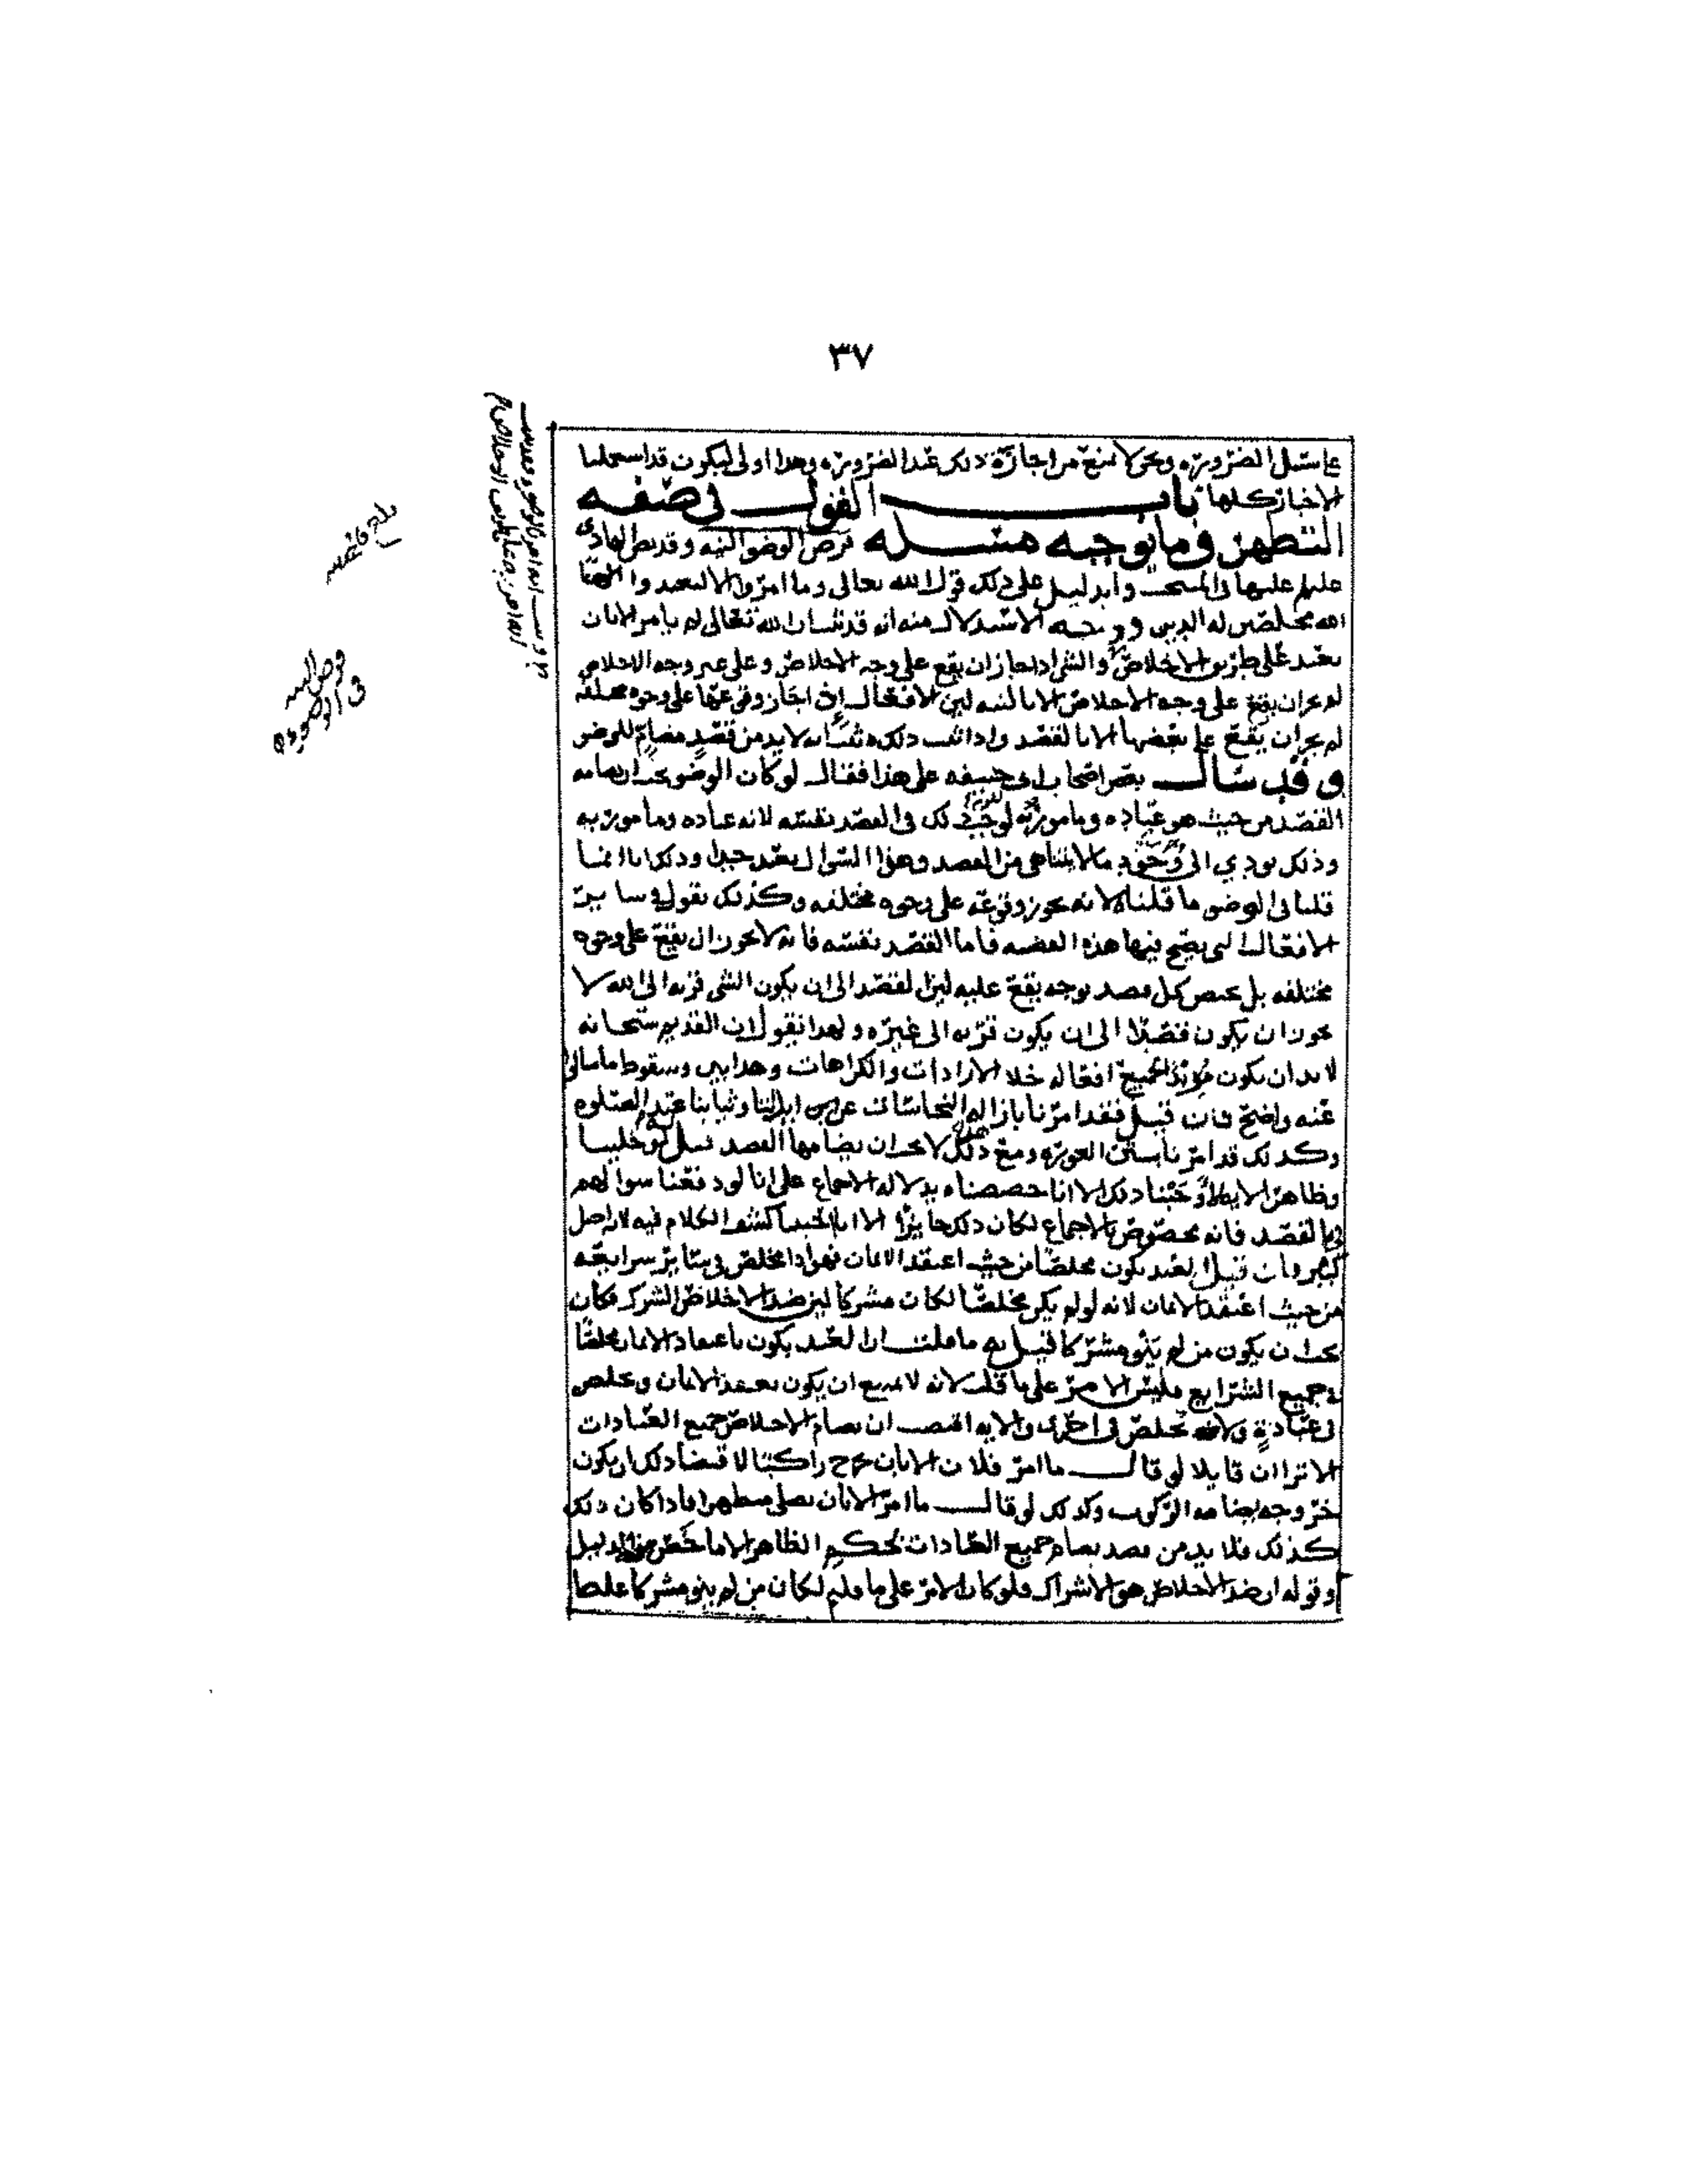 ٣٧
على سبيل الضرورة ونحن لا نمنع من اجازة ذلك عند الضرورة وهذا اولى ليكون قد استعملنا
الاخبار كلها باب القول في صفة
التطهر وما يوجبه مسئلة فرض الوضو النية وقد نص الهادي
عليها في المنتخب والدليل على ذلك قول الله تعالى وما امروا الا ليعبدوا
الله مخلصين له الدين ووجه الاستدلال منه انه قد ثبت ان الله تعالى لم يامر الا بان
يعبد على طريق الاخلاص والشي اذا جاز ان يقع على وجه الاخلاص وعلى غير وجه الاخلاص
لم يجز ان يقع على وجه الاخلاص الا بالنية لان الافعال اذا جاز وقوعها على وجوه مختلفة
لم يجز ان يقع على بعضها الا بالقصد واذا ثبت ذلك ثبت انه لا بد من قصد مضام للوضو
وقد سال بعض اصحاب ابي حنيفة على هذا فقال لو كان الوضو يجب ان يضامه
القصد من حيث هو عبادة ومامور به لوجب ذلك في القصد نفسه لانه عبادة ومامور به
وذلك يودي الى وجوب ما لا يتناهى من القصد وهذا السوال بعيد جدا وذلك انا انما
قلنا في الوضو ما قلناه لانه يجوز وقوعه على وجوه مختلفة وكذلك نقول في ساير
الافعال التي يصح فيها هذه القضية فاما القصد نفسه فانه لا يجوز ان يقع على وجوه
مختلفة بل يختص كل قصد بوجه يقع عليه لان القصد الى ان يكون الشي قربة الى الله لا
يجوز ان يكون قصدا الى ان يكون قربة الى غيره ولهذا نقول ان القديم سبحانه
لا بد ان يكون مريدا لجميع افعاله خلا الارادات والكراهات وهذا بين وسقوط ما سالوا
عنه واضح فان قيل فقد امرنا بازالة النجاسات عن ابداننا وثيابنا عند الصلوة
وكذلك قد امرنا بستر العورة ومع ذلك لا يجب ان يضامها القصد قيل لهم لو خلينا
وظاهر الاية لاوجبنا ذلك الا انا خصصناه بدلالة الاجماع على انا لو دفعنا سوالهم
بالقصد فانه مخصوص بالاجماع لكان ذلك جايزا الا انا احببنا كشف الكلام فيه لانه اصل
كبير فان قيل العبد يكون مخلصا من حيث اعتقد الايمان فهو اذا مخلص في ساير شرايعه
من حيث اعتقد الايمان لانه لو لم يكن مخلصا لكان مشركا لان ضد الاخلاص الشرك فكان
يجب ان يكون من لم ينو مشركا قيل له ما قلت ان العبد يكون باعتقاد الايمان مخلصا
في جميع الشرايع فليس الامر على ما قلت لانه لا يمتنع ان يكون يعتقد الايمان ويخلص
في عبادة ولا يخلص في اخرى والاية اقتضت ان يضام الاخلاص جميع العبادات
الا ترا ان قايلا لو قال ما امر فلان الا بان يخرج راكبا لاقتضا ذلك ان يكون
خروجه يضامه الركوب وكذلك لو قال ما امر الا بان يصلي متطهرا فاذا كان ذلك
كذلك فلا بد من قصد يضام جميع العبادات بحكم الظاهر الا ما خصه الدليل
وقوله ان ضد الاخلاص هو الاشراك فلو كان الامر على ما قلتم لكان من لم ينو مشركا غلط
فرض النية
في الوضو